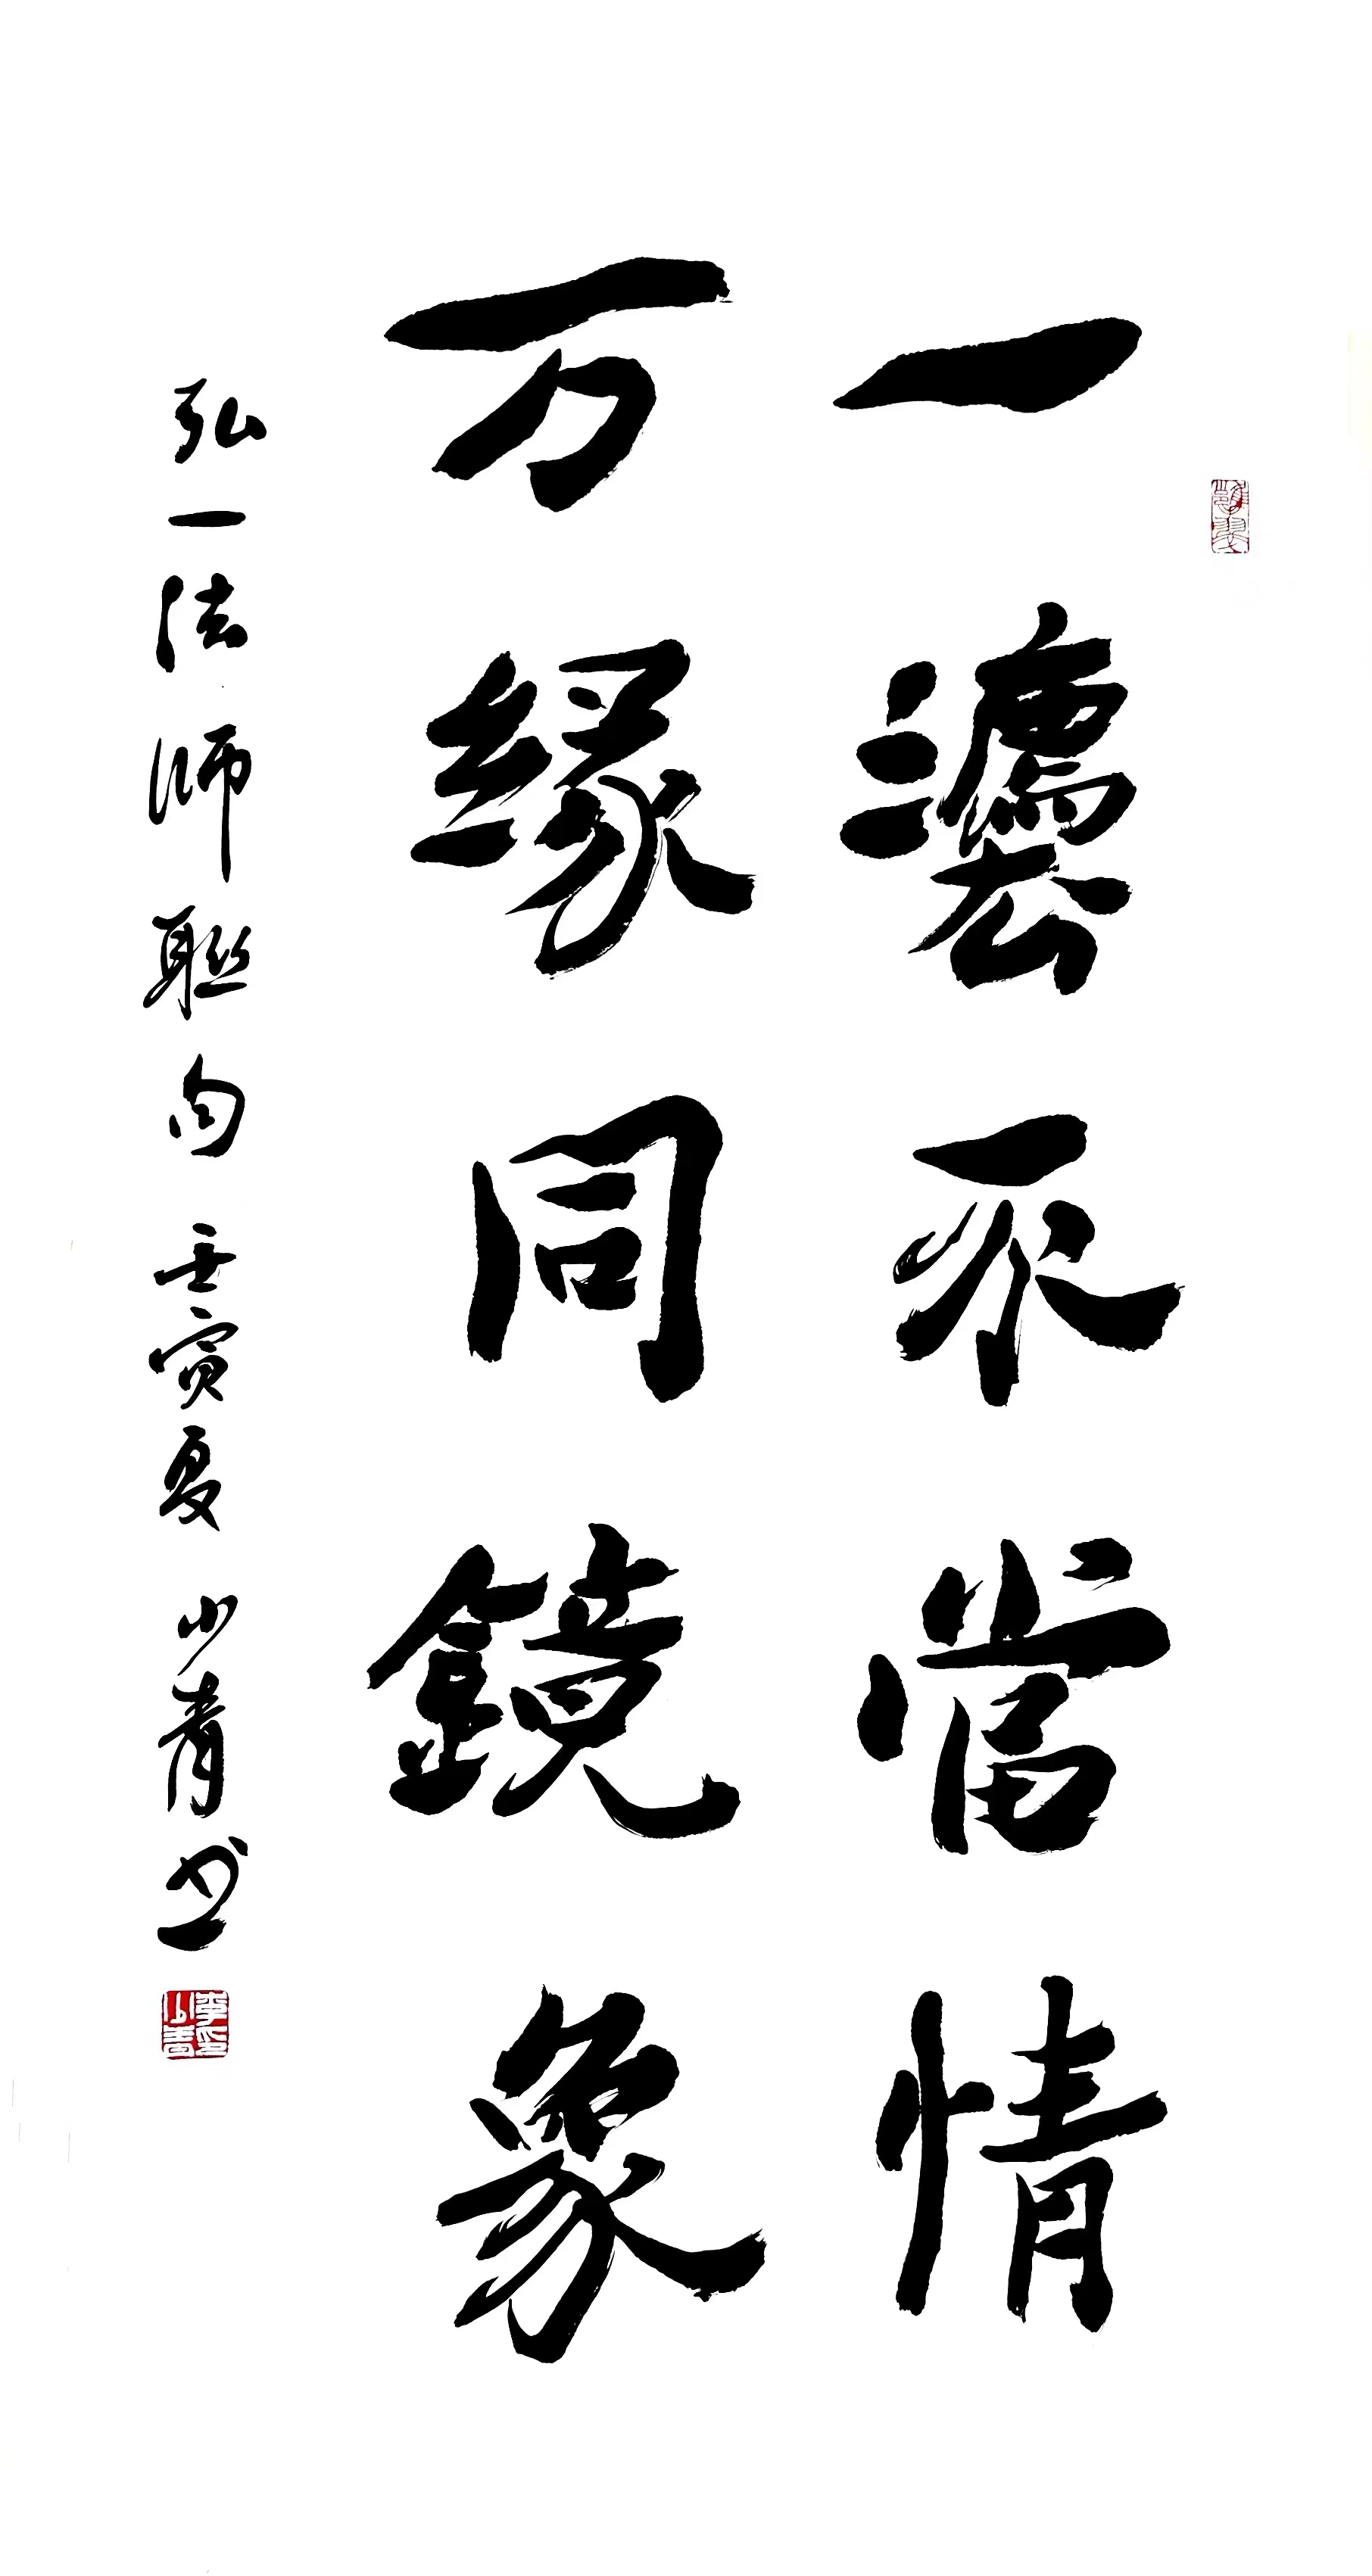 一灋不當情
万缘同鏡象
弘一法师聯句 壬寅夏 少青书